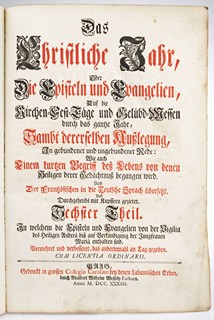 Das
Christliche Jahr,
Oder
Die Episteln und Evangelien,
Auf die
Kirchen-Fest-Täge und Gelübd-Messen
durch das gantze Jahr,
Sambt dererselben Außlegung,
In gebundener und ungebundener Rede:
Wie auch
Einem kurtzen Begriff des Lebens von denen
Heiligen derer Gedächtnuß begangen wird.
Aus
Der Frantzösischen in die Teutsche Sprach übersetzt,
Und
Durchgehends mit Kupffern gezieret.
Sechster Theil.
In welchen die Episteln und Evangelien von der Vigilia
des Heiligen Andreä biß auf Verkündigung der Jungfrauen
Mariä enthalten sind.
Vermehret und verbessert, das andertemahl an Tag gegeben.
CUM LICENTIA ORDINARII.
PRAG,
Gedruckt in grossen Collegio Carolino bey denen Labaunischen Erben,
durch Wenzel Wilhelm Factorn.
Anno M. DCC. XXXIII.